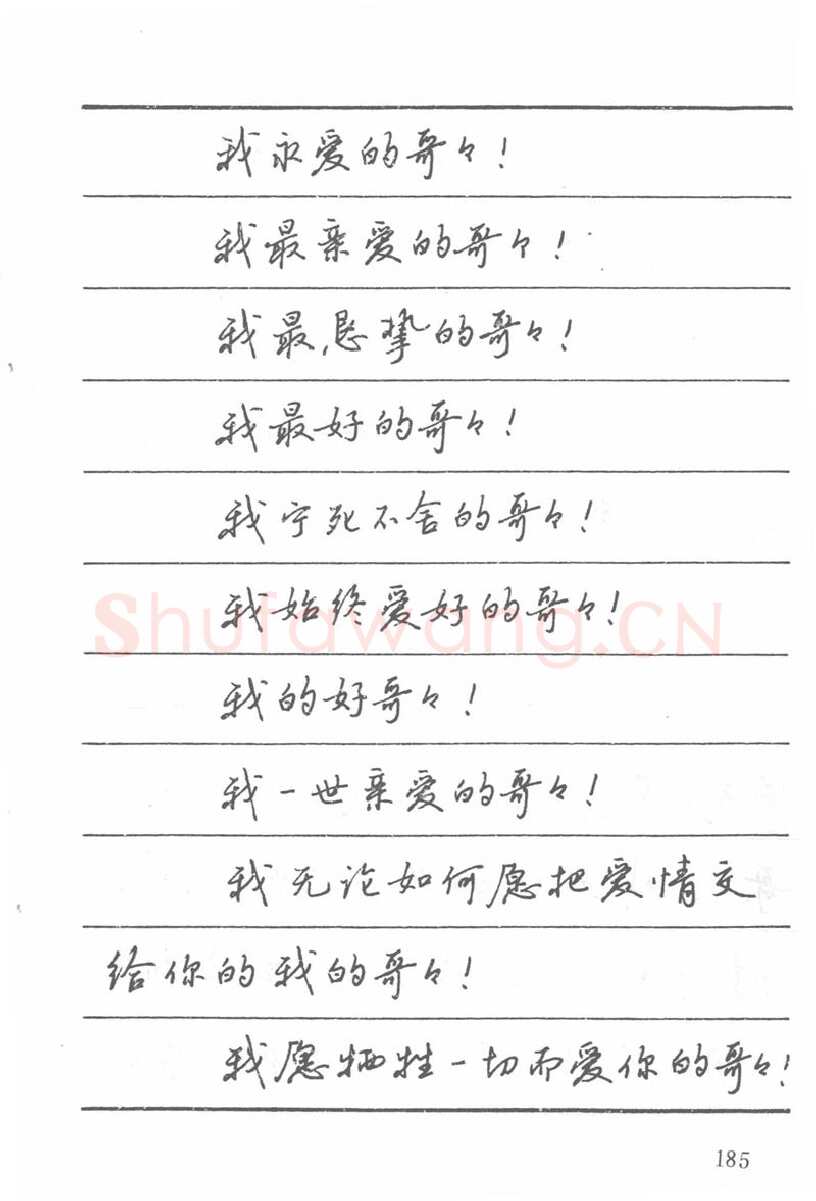 我永爱的哥々！
我最亲爱的哥々！
我最恳挚的哥々！
我最好的哥々！
我宁死不舍的哥々！
我始终爱好的哥々！
我的好哥々！
我一世亲爱的哥々！
我无论如何愿把爱情交
给你的我的哥々！
我愿牺牲一切而爱你的哥々！
185
Shufawang.CN